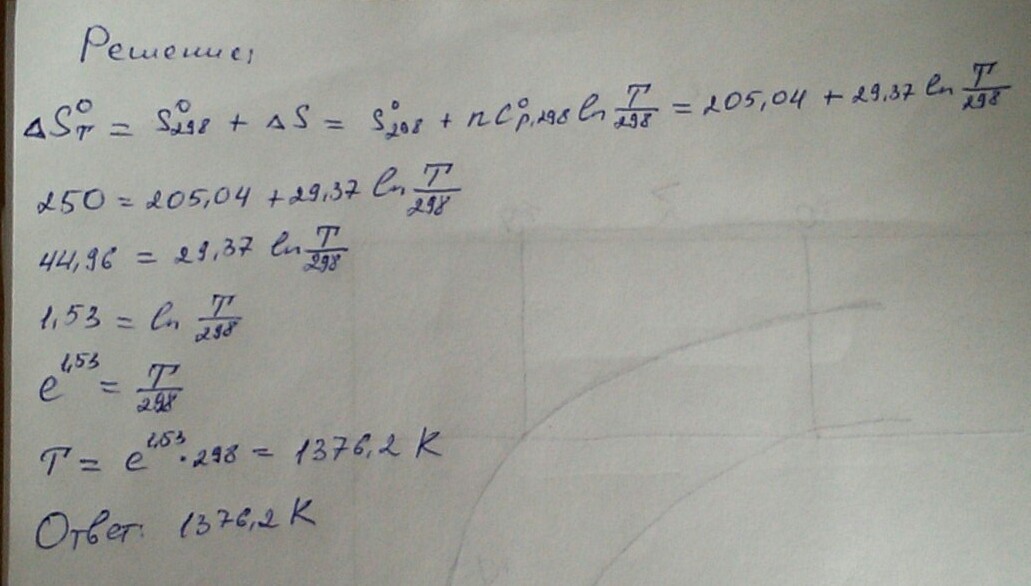 Решение:
ΔS°T = S°298 + ΔS = S°298 + nC°p,298 ln T/298 = 205,04 + 29,37 ln T/298
250 = 205,04 + 29,37 ln T/298
44,96 = 29,37 ln T/298
1,53 = ln T/298
e^1,53 = T/298
T = e^1,53 · 298 = 1376,2 K
Ответ: 1376,2 K